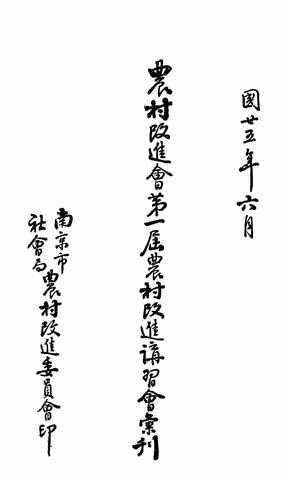 國廿五年六月
農村改進會第一屆農村改進講習會彙刊
南京市
社會局
農村改進委員會印